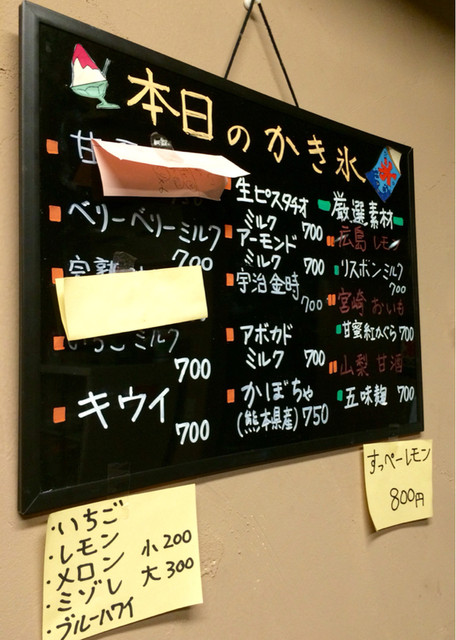 本日のかき氷
甘
ベリーベリーミルク
700
完熟
いちごミルク
700
キウイ
700
生ピスタチオ
ミルク 700
アーモンド
ミルク 700
宇治金時
700
アボカド
ミルク 700
かぼちゃ
(熊本県産) 750
厳選素材
広島 レモン
リスボンミルク
700
宮崎 おいも
甘蜜紅かぐら 700
山梨 甘酒
五味麹 700
・いちご
・レモン
・メロン
・ミゾレ
・ブルーハワイ
小 200
大 300
すっぺーレモン
800円